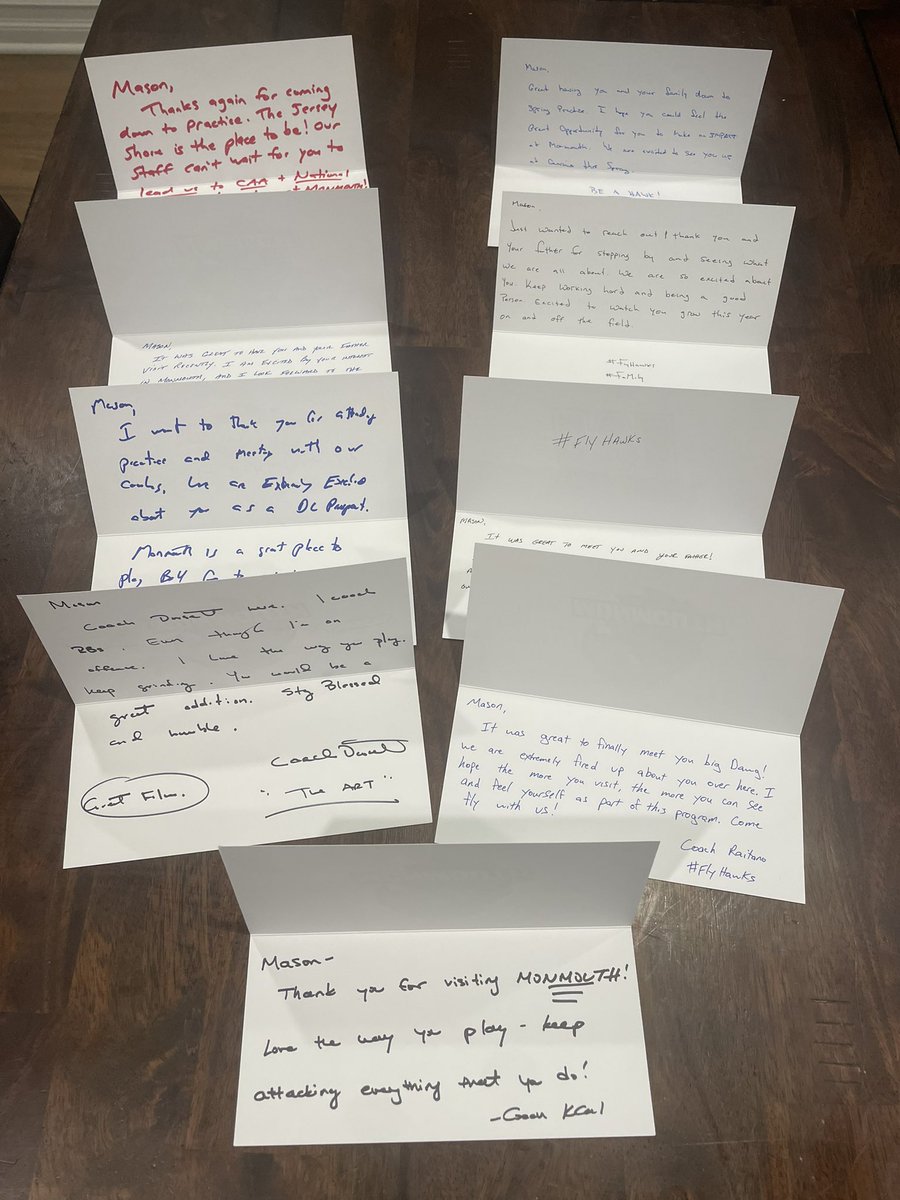 Mason,
Thanks again for coming
down to practice. The Jersey
Shore is the place to be! Our
Staff can't wait for you to
lead us to CAA + National
+ MONMOUTH!
Mason,
Great having you and your family down to
Spring Practice. I hope you could feel the
Great Opportunity for you to make an IMPACT
at Monmouth. We are excited to see you
at this Spring.
BE A HAWK!
MASON,
IT WAS GREAT TO HAVE YOU AND YOUR FATHER
VISIT RECENTLY. I AM EXCITED BY YOUR INTEREST
IN MONMOUTH, AND I LOOK FORWARD TO THE
Mason,
Just wanted to reach out & thank you and
your father for stopping by and seeing what
we are all about. We are so excited about
you. Keep working hard and being a good
Person. Excited to watch you grow this year
on and off the field.
#FlyHawks
#FaMily
Mason,
I want to thank you for attending
practice and meeting with our
coaches, we are Extremely Excited
about you as a DL Prospect.
Monmouth is a great place to
play
#FLYHAWKS
MASON,
IT WAS GREAT TO MEET YOU AND YOUR FATHER!
Mason
Coach here. I coach
RBs. Even though I'm on
offense. I love the way you play.
keep grinding. You would be a
great addition. Stay Blessed
and humble.
Coach
"The ART"
Great Film.
Mason,
It was great to finally meet you big Dawg!
we are extremely fired up about you over here. I
hope the more you visit, the more you can see
and feel yourself as part of this program. Come
fly with us!
Coach Raitano
#FlyHawks
Mason-
Thank you for visiting MONMOUTH!
Love the way you play - keep
attacking everything that you do!